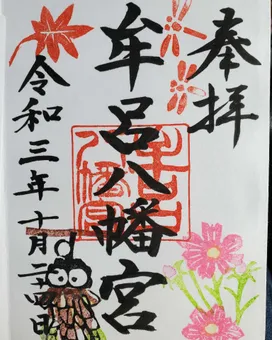 奉拝
牟呂八幡宮
令和三年十月二十四日